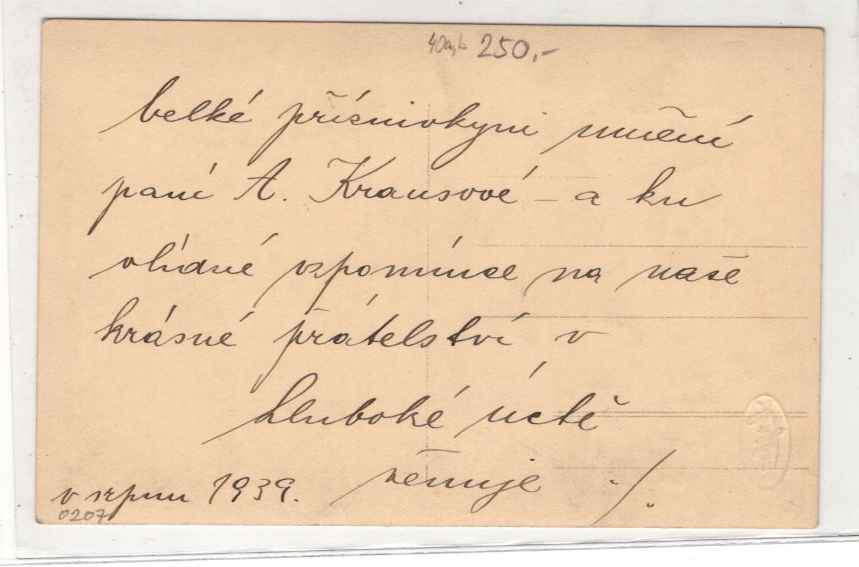 40a,b 250,-
Velké příznivkyni umění
paní A. Krausové – a ku
vlídné vzpomínce na naše
krásné přátelství v
hluboké úctě
věnuje ./.
v srpnu 1939.
0207